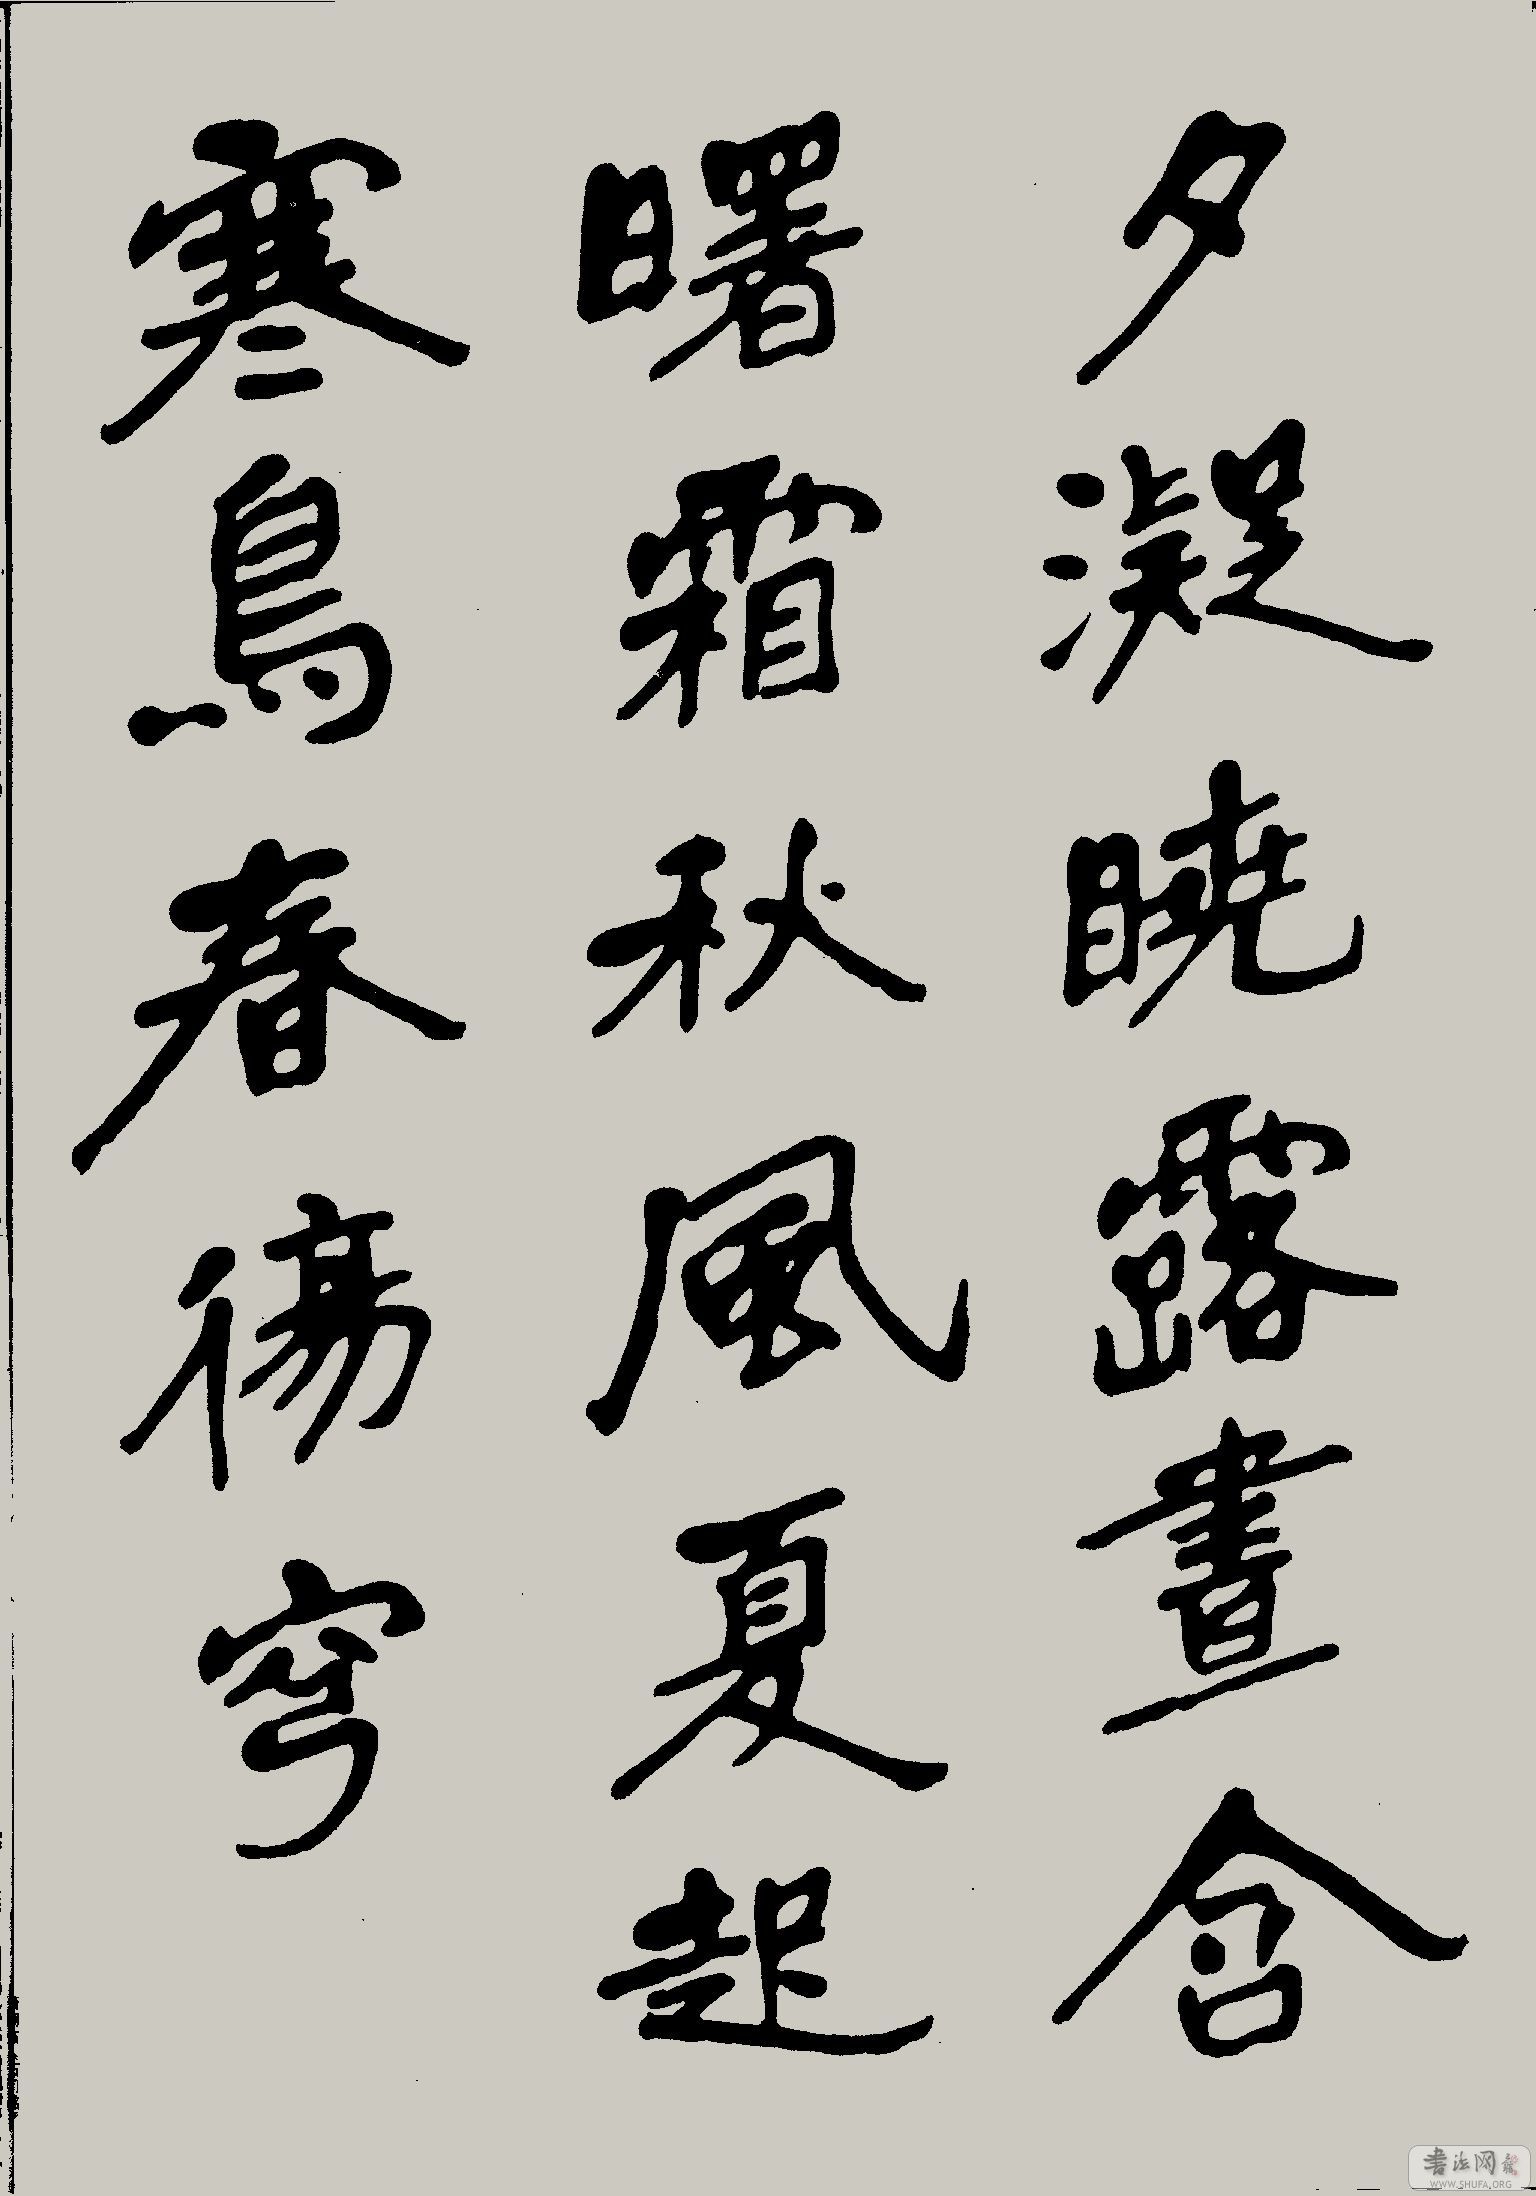 夕凝曉露晝含
曙霜秋風夏起
寒鳥春傷穹
書法网
WWW.SHUFA.ORG